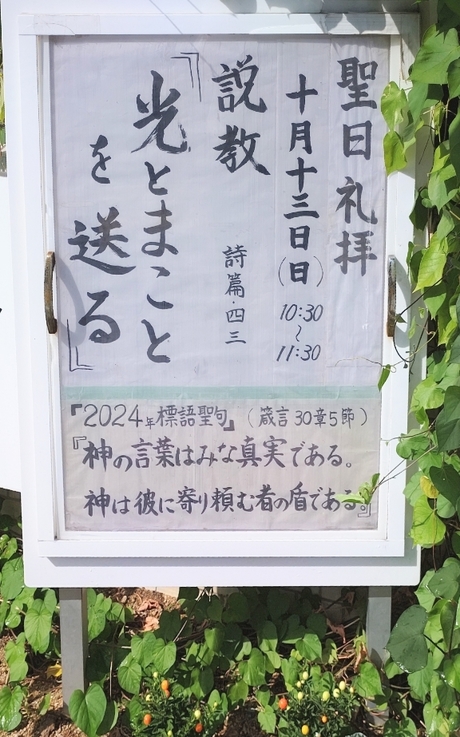 聖日礼拝
十月十三日(日) 10:30~11:30
説教 詩篇・四三
『光とまこと
を送る』
『2024年標語聖句』(箴言30章5節)
『神の言葉はみな真実である。
神は彼に寄り頼む者の盾である。』